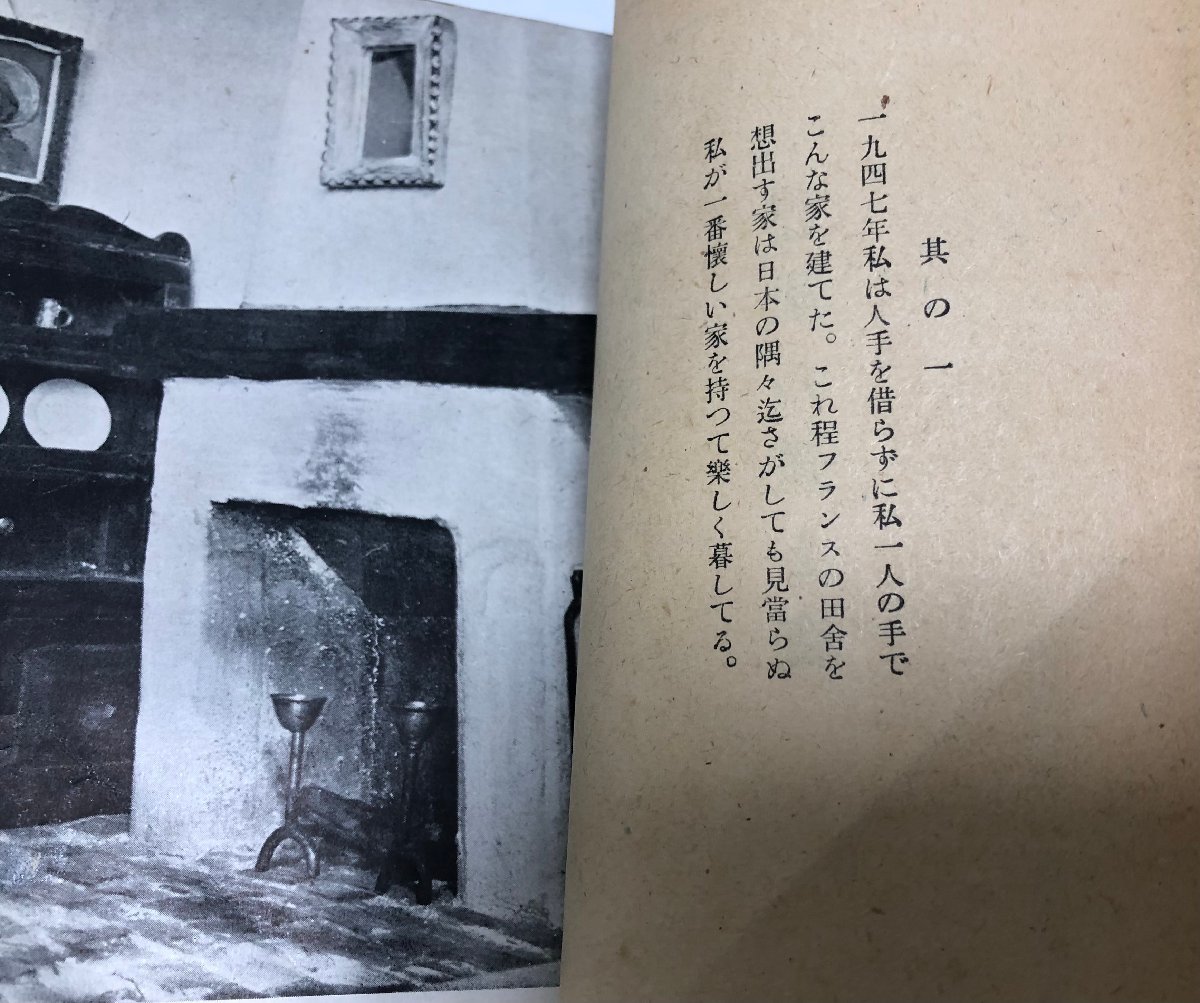 其の一
一九四七年私は人手を借らずに私一人の手で
こんな家を建てた。これ程フランスの田舍を
想出す家は日本の隅々迄さがしても見當らぬ
私が一番懷しい家を持つて樂しく暮してる。